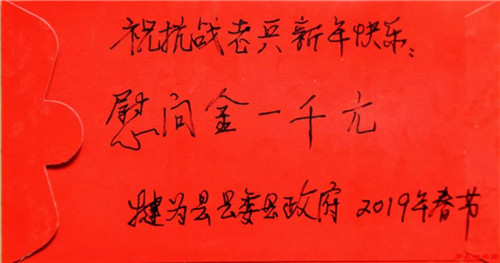 祝抗战老兵新年快乐:
慰问金一千元
犍为县县委县政府 2019年春节